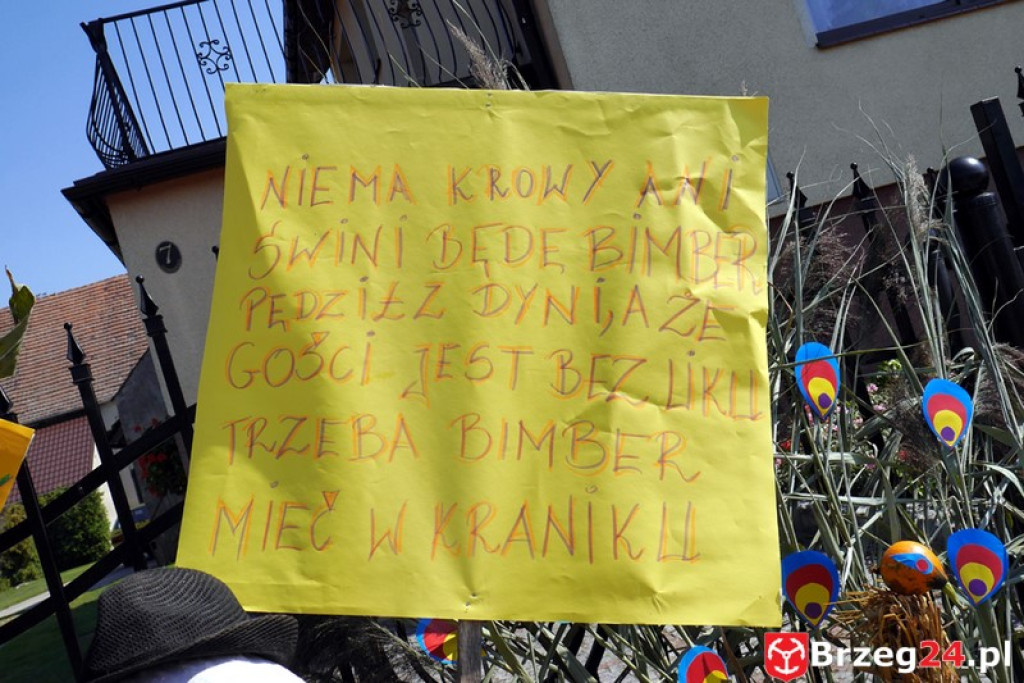 7
NIEMA KROWY ANI
ŚWINI BĘDĘ BIMBER
PĘDZIŁ Z DYNI, A ŻE
GOŚCI JEST BEZ LIKU
TRZEBA BIMBER
MIEĆ W KRANIKU
Brzeg24.pl